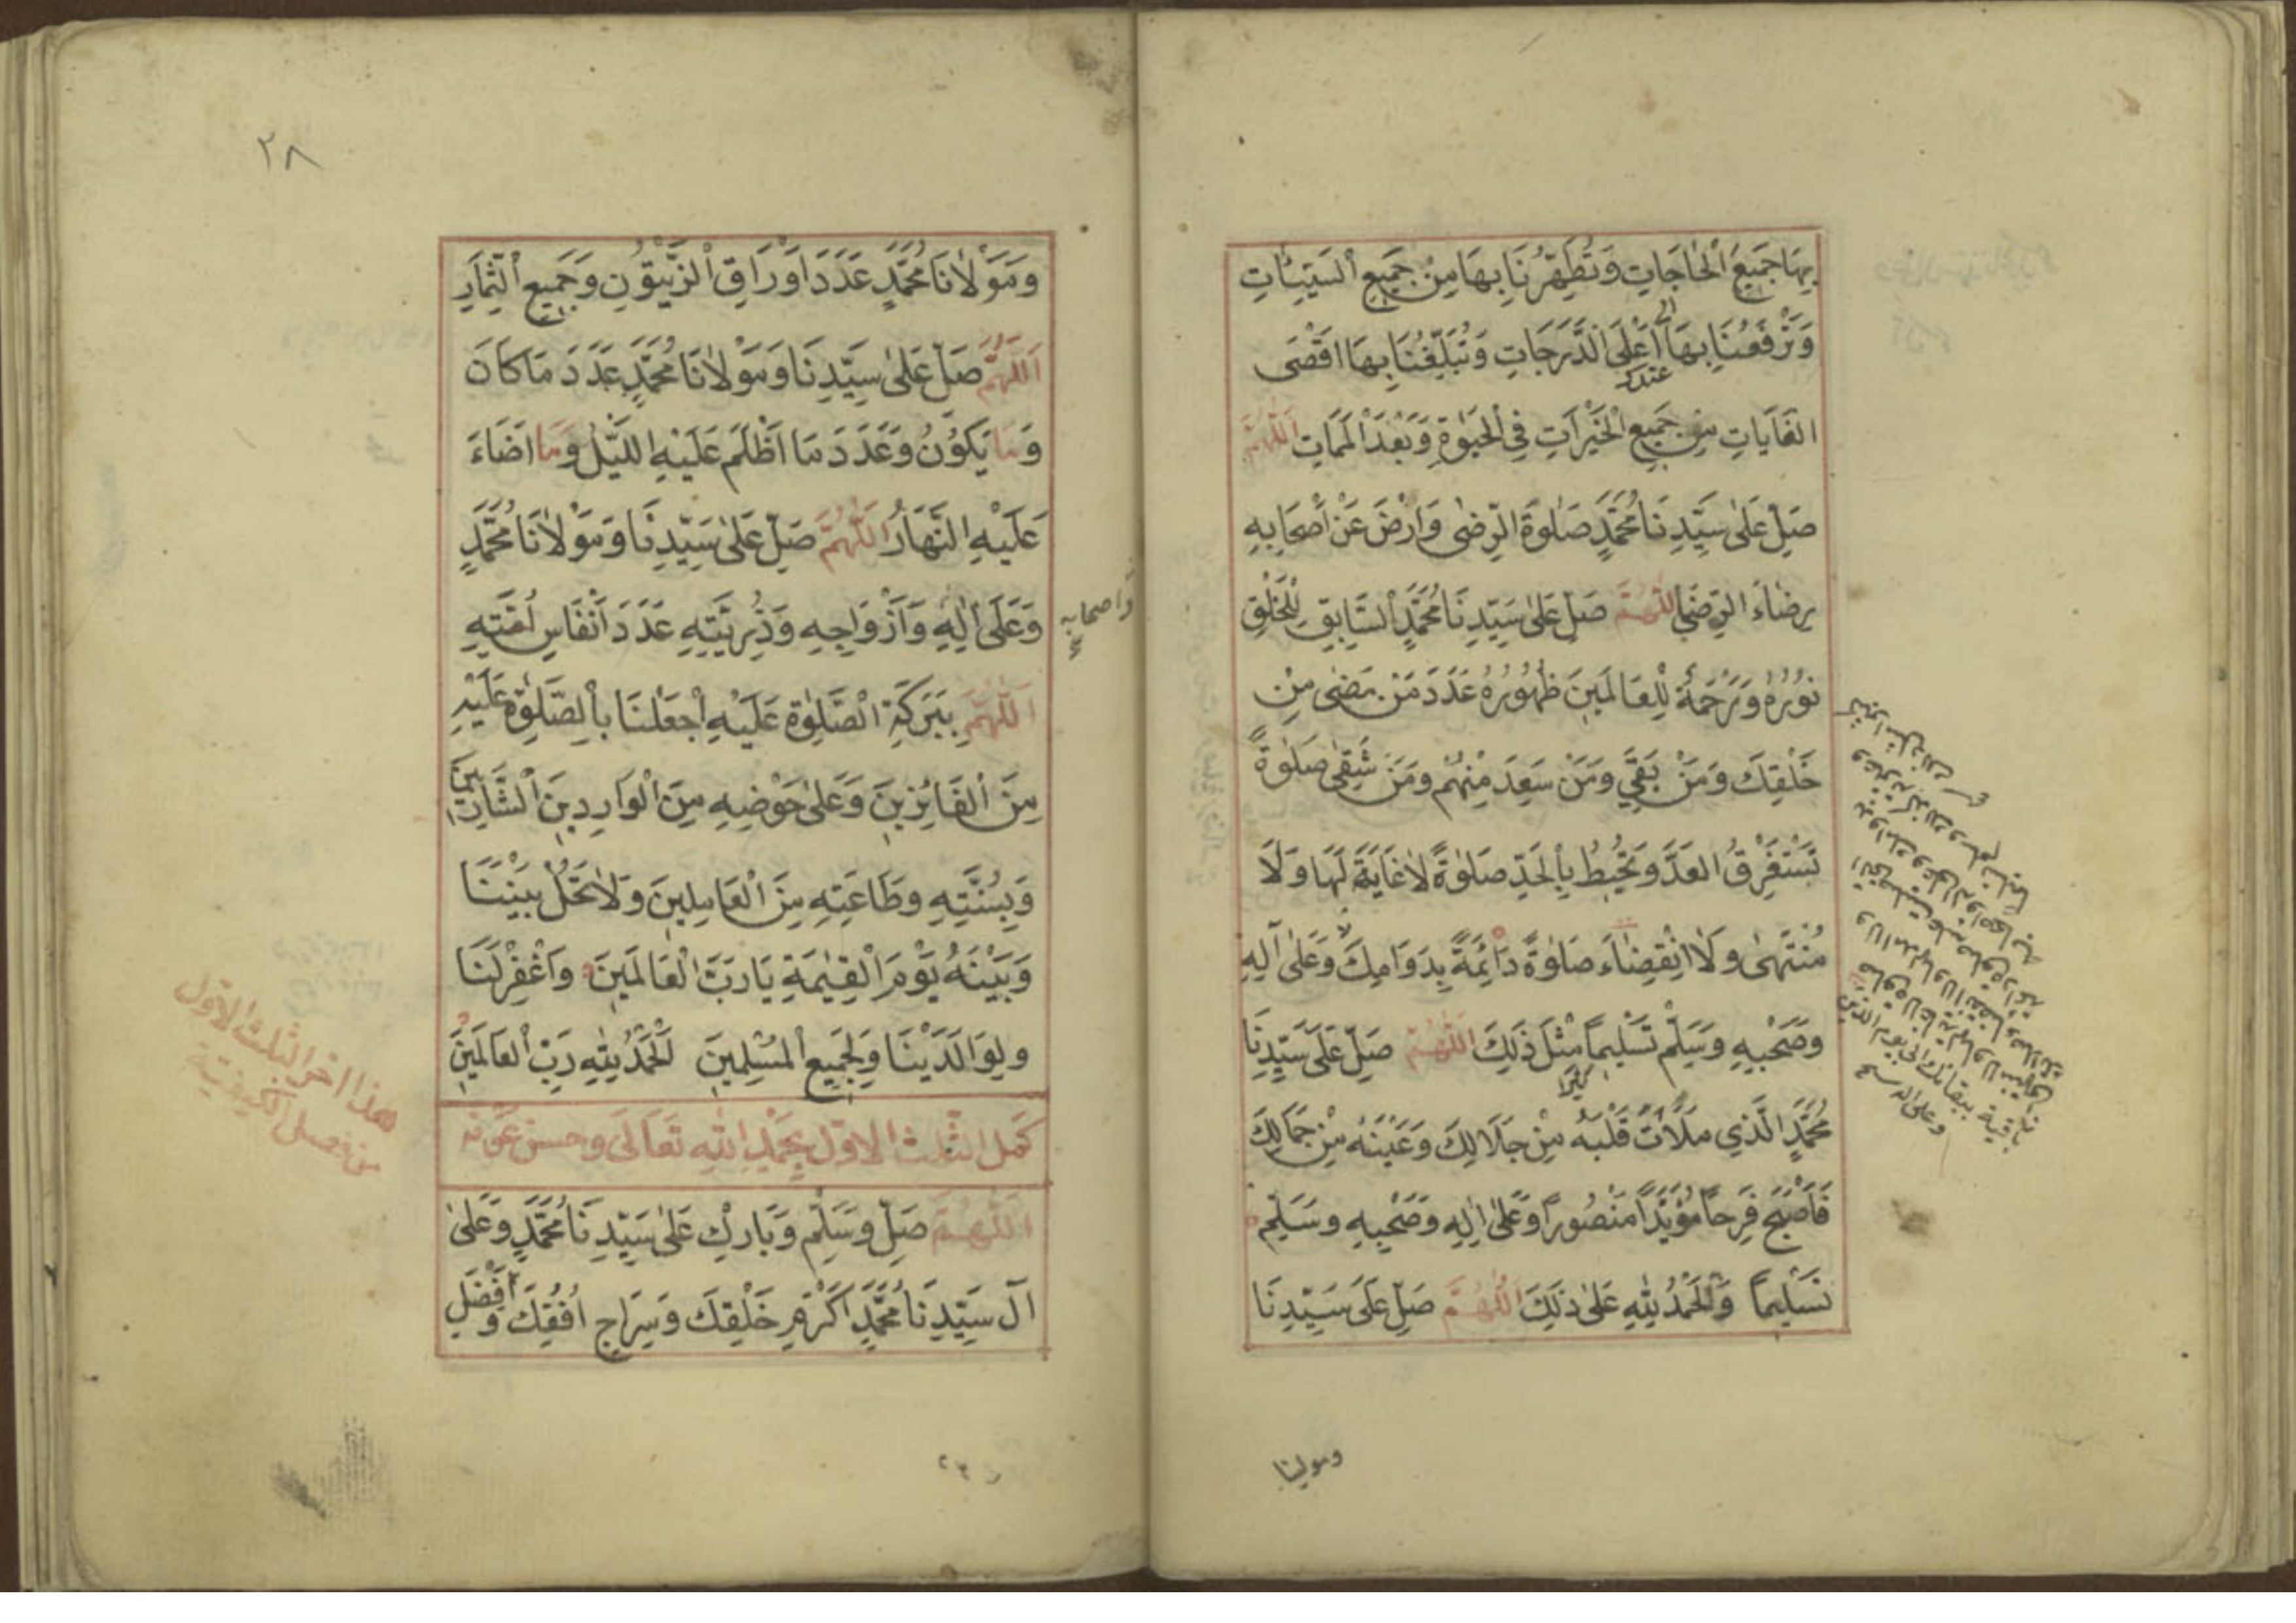 بِهَا جَمِيعَ الْحَاجَاتِ وَتُطَهِّرُنَا بِهَا مِنْ جَمِيعِ السَّيِّئَاتِ
وَتَرْفَعُنَا بِهَا أَعْلَى الدَّرَجَاتِ وَتُبَلِّغُنَا بِهَا اقْصَى
عندك
الغَايَاتِ مِنْ جَمِيعِ الْخَيْرَاتِ فِي الْحَيٰوةِ وَبَعْدَ الْمَمَاتِ اللّٰهُمَّ
صَلِّ عَلَىٰ سَيِّدِنَا مُحَمَّدٍ صَلٰوةَ الرِّضٰى وَارْضَ عَنْ أَصْحَابِهِ
رِضَاءَ الرِّضَى اللّٰهُمَّ صَلِّ عَلَىٰ سَيِّدِنَا مُحَمَّدٍ السَّابِقِ لِلْخَلْقِ
نُورُهُ وَرَحْمَةٌ لِلْعَالَمِينَ ظُهُورُهُ عَدَدَ مَنْ مَضٰى مِنْ
خَلْقِكَ وَمَنْ بَقِيَ وَمَنْ سَعِدَ مِنْهُمْ وَمَنْ شَقِىَ صَلٰوةً
تَسْتَغْرِقُ العَدَّ وَتُحِيطُ بِالْحَدِّ صَلٰوةً لَا غَايَةَ لَهَا وَلَا
مُنْتَهٰى وَلَا انْقِضَاءَ صَلٰوةً دَائِمَةً بِدَوَامِكَ وَعَلَى آلِهِ
وَصَحْبِهِ وَسَلِّمْ تَسْلِيمًا مِثْلَ ذٰلِكَ اللّٰهُمَّ صَلِّ عَلَى سَيِّدِنَا
مُحَمَّدٍ الَّذِي مَلَأْتَ قَلْبَهُ مِنْ جَلَالِكَ وَعَيْنَهُ مِنْ جَمَالِكَ
فَأَصْبَحَ فَرِحًا مُؤَيَّدًا مَنْصُورًا وَعَلَىٰ اٰلِهِ وَصَحْبِهِ وَسَلِّمْ
تَسْلِيمًا وَالْحَمْدُ لِلّٰهِ عَلَىٰ ذٰلِكَ اللّٰهُمَّ صَلِّ عَلَى سَيِّدِنَا
ومولينا
٢٨
وَمَوْلَانَا مُحَمَّدٍ عَدَدَ اَوْرَاقِ الزَّيْتُونِ وَجَمِيعِ الثِّمَارِ
اَللّٰهُمَّ صَلِّ عَلَىٰ سَيِّدِنَا وَمَوْلَانَا مُحَمَّدٍ عَدَدَ مَا كَانَ
وَمَا يَكُونُ وَعَدَدَ مَا اَظْلَمَ عَلَيْهِ اللَّيْلُ وَمَا اَضَاءَ
عَلَيْهِ النَّهَارُ اللّٰهُمَّ صَلِّ عَلَىٰ سَيِّدِنَا وَمَوْلَانَا مُحَمَّدٍ
وَعَلَىٰ اٰلِهِ وَأَزْوَاجِهِ وَذُرِّيَّتِهِ عَدَدَ أَنْفَاسِ اُمَّتِهِ
واصحابه
اَللّٰهُمَّ بِبَرَكَةِ الصَّلٰوةِ عَلَيْهِ اجْعَلْنَا بِالصَّلٰوةِ عَلَيْهِ
مِنَ الفَائِزِينَ وَعَلَىٰ حَوْضِهِ مِنَ الْوَارِدِينَ الشَّارِبِينَ
وَبِسُنَّتِهِ وَطَاعَتِهِ مِنَ الْعَامِلِينَ وَلَا تَحُلْ بَيْنَنَا
وَبَيْنَهُ يَوْمَ الْقِيٰمَةِ يَا رَبَّ الْعَالَمِينَ وَاغْفِرْ لَنَا
وَلِوَالَدَيْنَا وَلِجَمِيعِ الْمُسْلِمِينَ اَلْحَمْدُ لِلّٰهِ رَبِّ الْعَالَمِينَ
كَمَل الثُّلث الاوّل بِحَمْدِ اللهِ تَعَالَى وحسن عونه
اللّٰهُمَّ صَلِّ وَسَلِّمْ وَبَارِكْ عَلَىٰ سَيِّدِنَا مُحَمَّدٍ وَعَلَىٰ
آلِ سَيِّدِنَا مُحَمَّدٍ اَكْرَمِ خَلْقِكَ وَسِرَاجِ اُفُقِكَ وَأَفْضَلِ
هذا اخر الثلث الاول
من فصل الكيفية